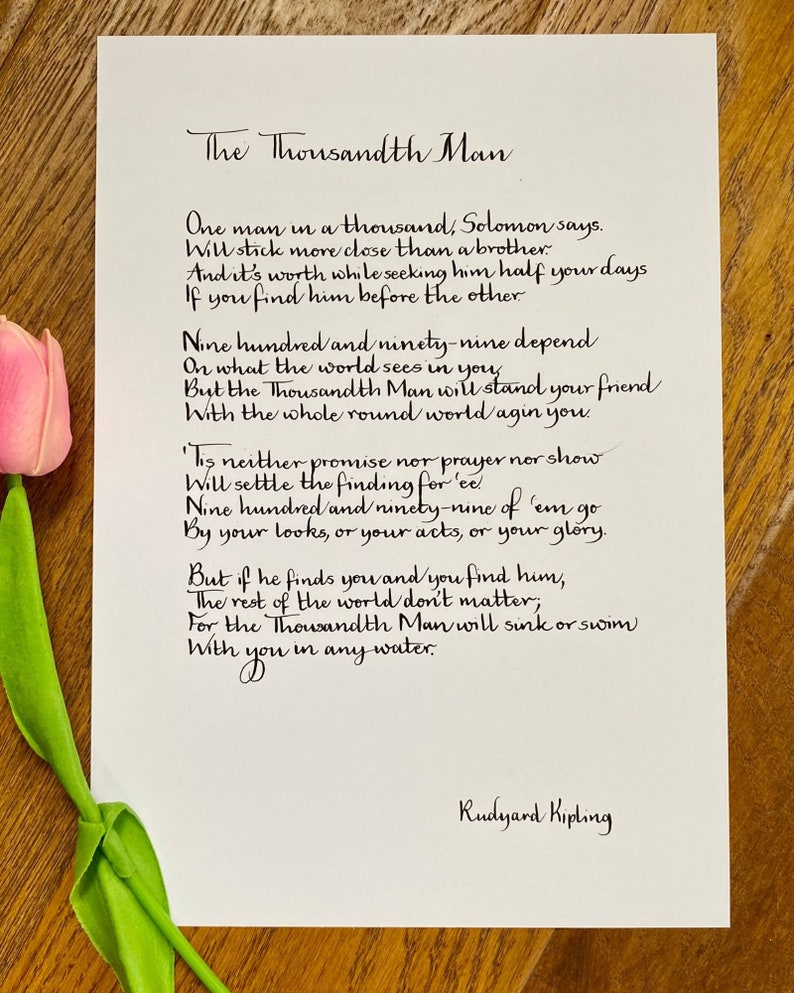 The Thousandth Man
One man in a thousand, Solomon says.
Will stick more close than a brother.
And it's worth while seeking him half your days
If you find him before the other.
Nine hundred and ninety-nine depend
On what the world sees in you,
But the Thousandth Man will stand your friend
With the whole round world agin you.
'Tis neither promise nor prayer nor show
Will settle the finding for 'ee.
Nine hundred and ninety-nine of 'em go
By your looks, or your acts, or your glory.
But if he finds you and you find him,
The rest of the world don't matter;
For the Thousandth Man will sink or swim
With you in any water.
Rudyard Kipling